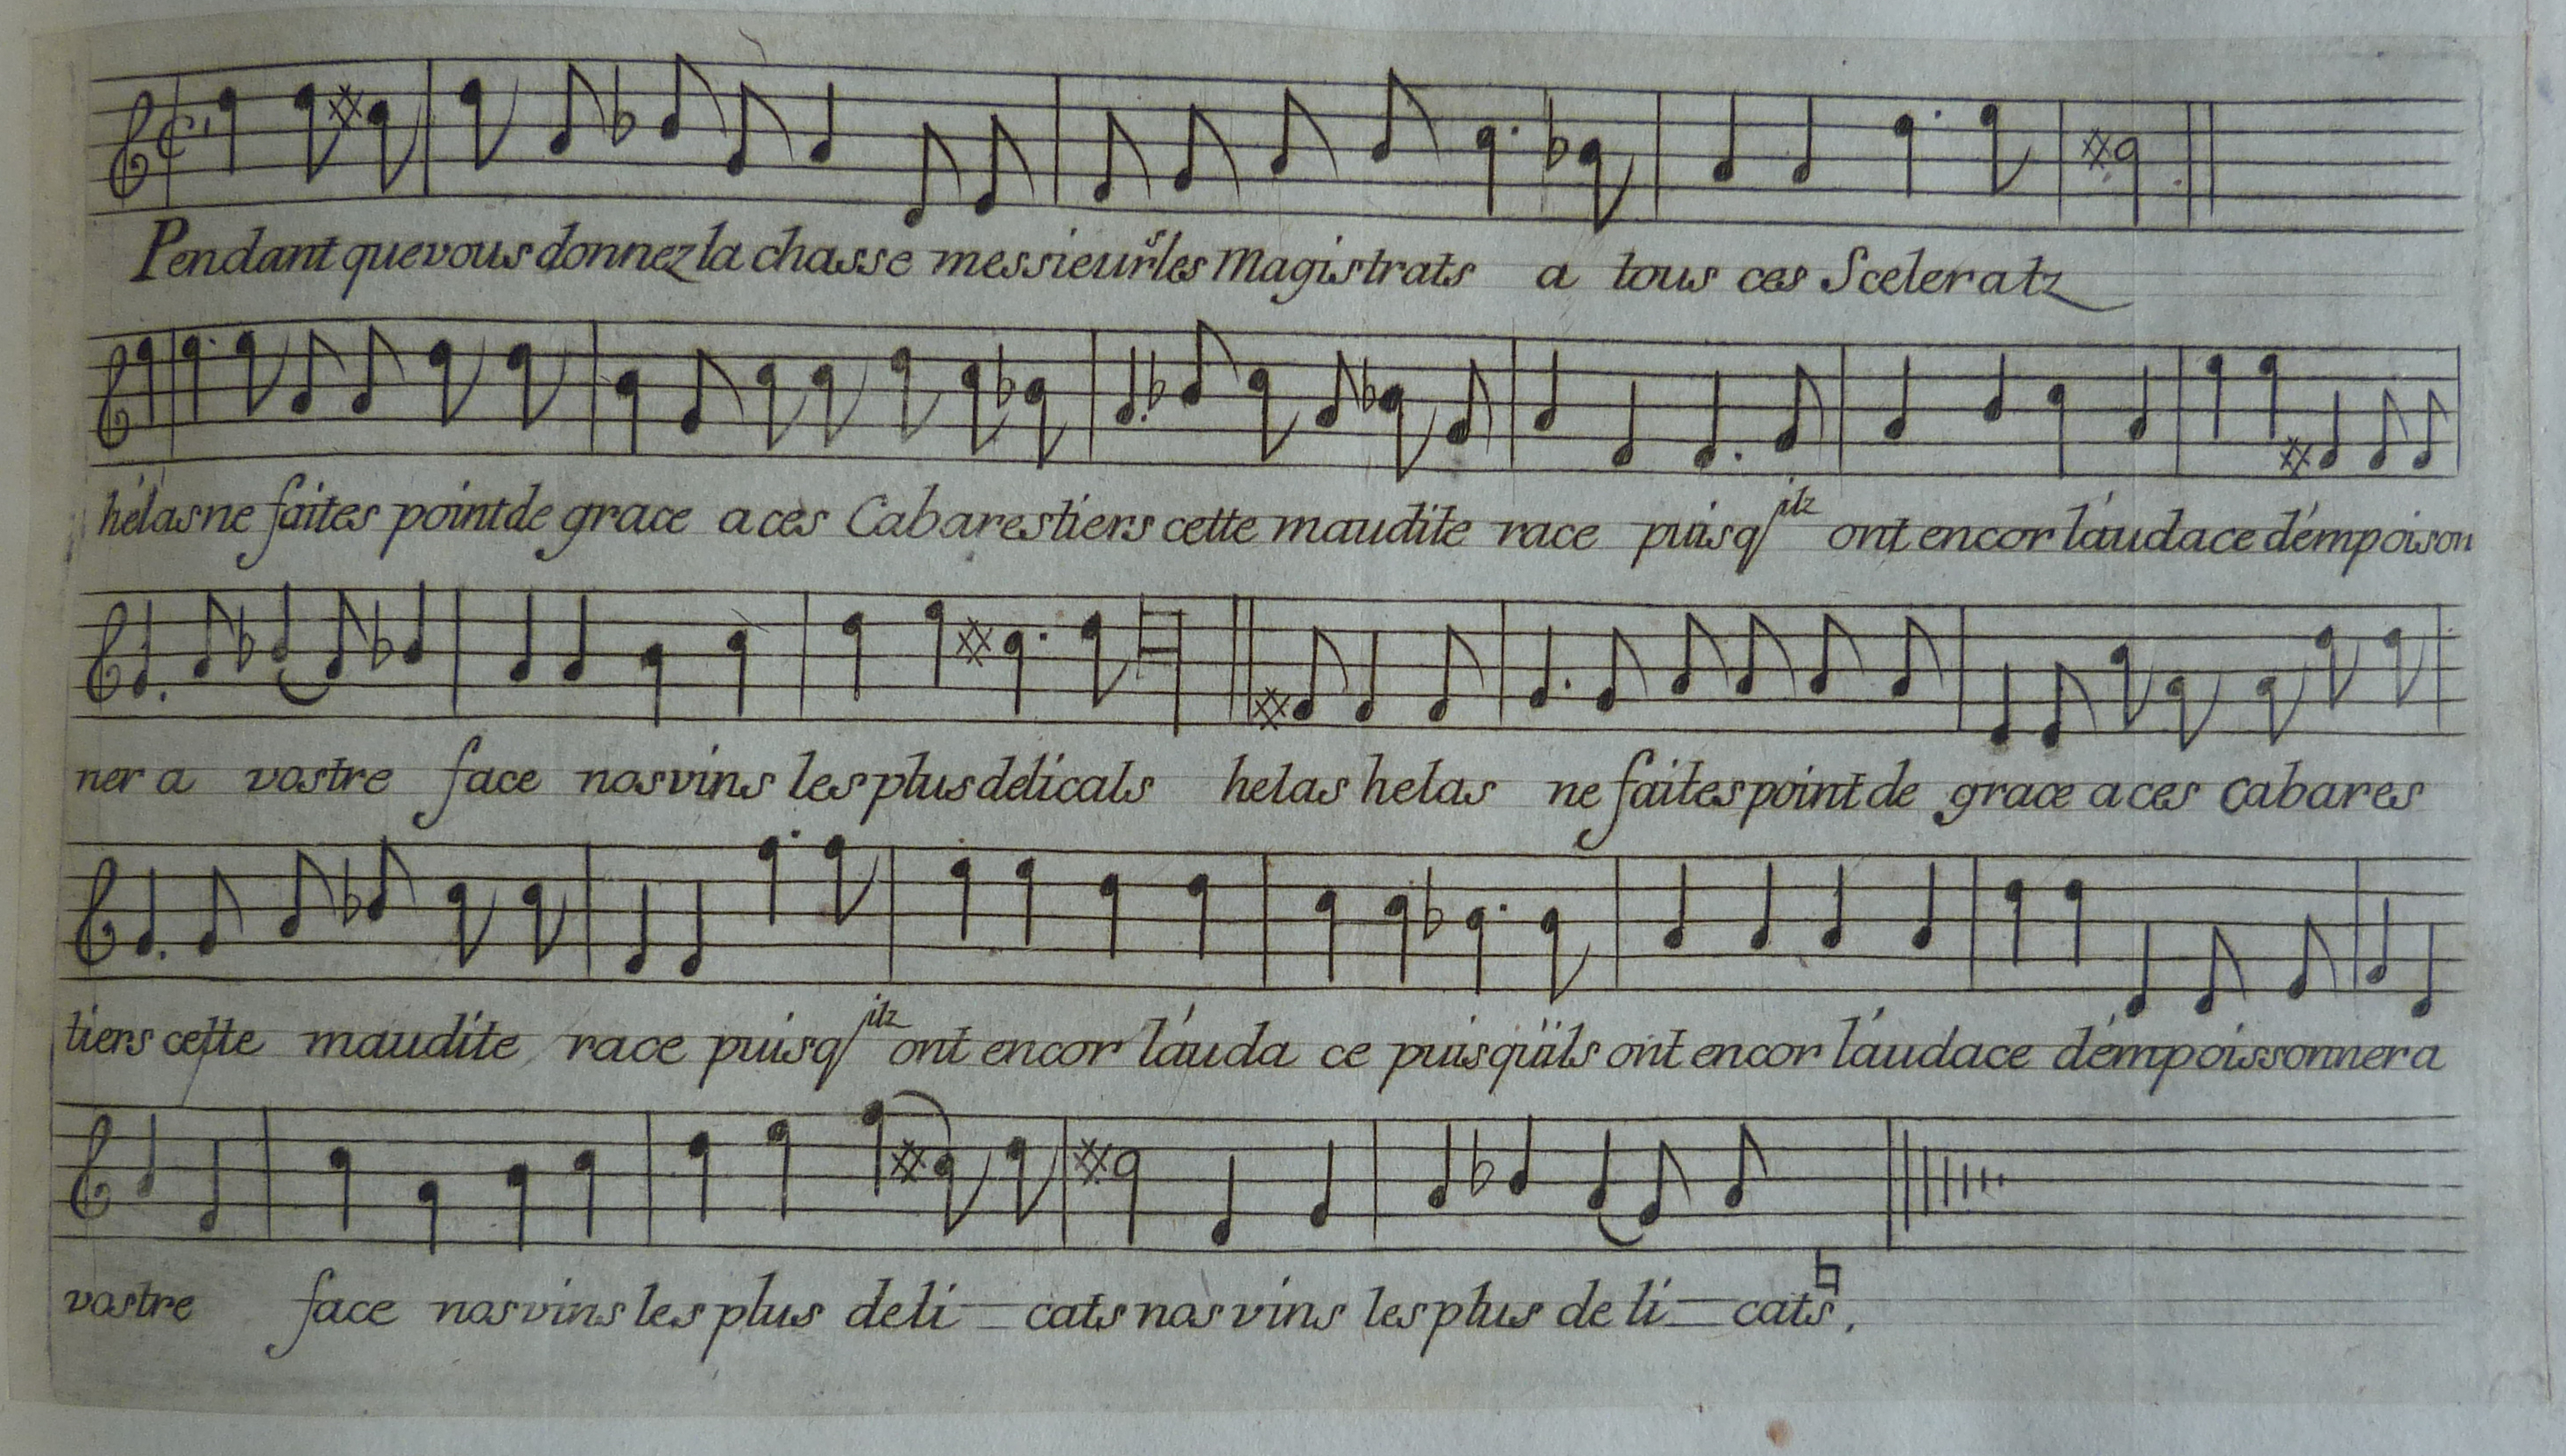 Pendant que vous donnez la chasse messieurs les Magistrats a tous ces Sceleratz
hélas ne faites point de grace a ces Cabarestiers cette maudite race puisq ilz ont encor láudace démpoison
ner a vostre face nos vins les plus delicats helas helas ne faites point de grace a ces cabares
tiers cette maudite race puisq ilz ont encor láuda ce puisquïls ont encor láudace démpoissonner a
vostre face nos vins les plus deli - cats nos vins les plus de li - cats.